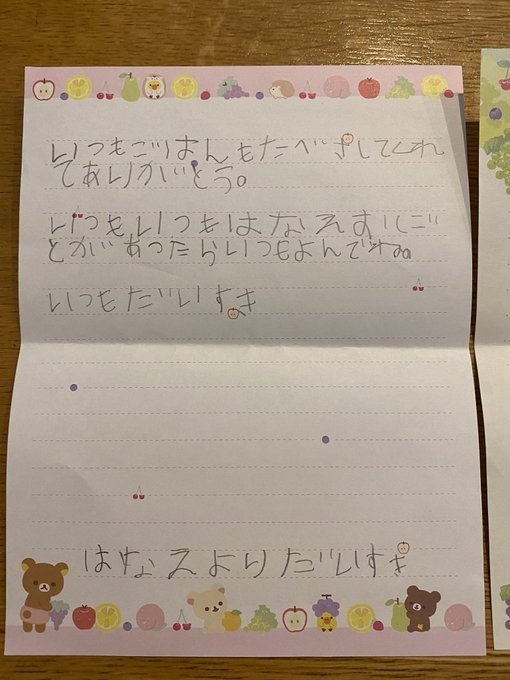 いつもごはんもたべさしてくれ
てありがとう。
いつもいつもはなえおしご
とがあったらいつもよんでね。
いつもだいすき
はなえよりだいすき